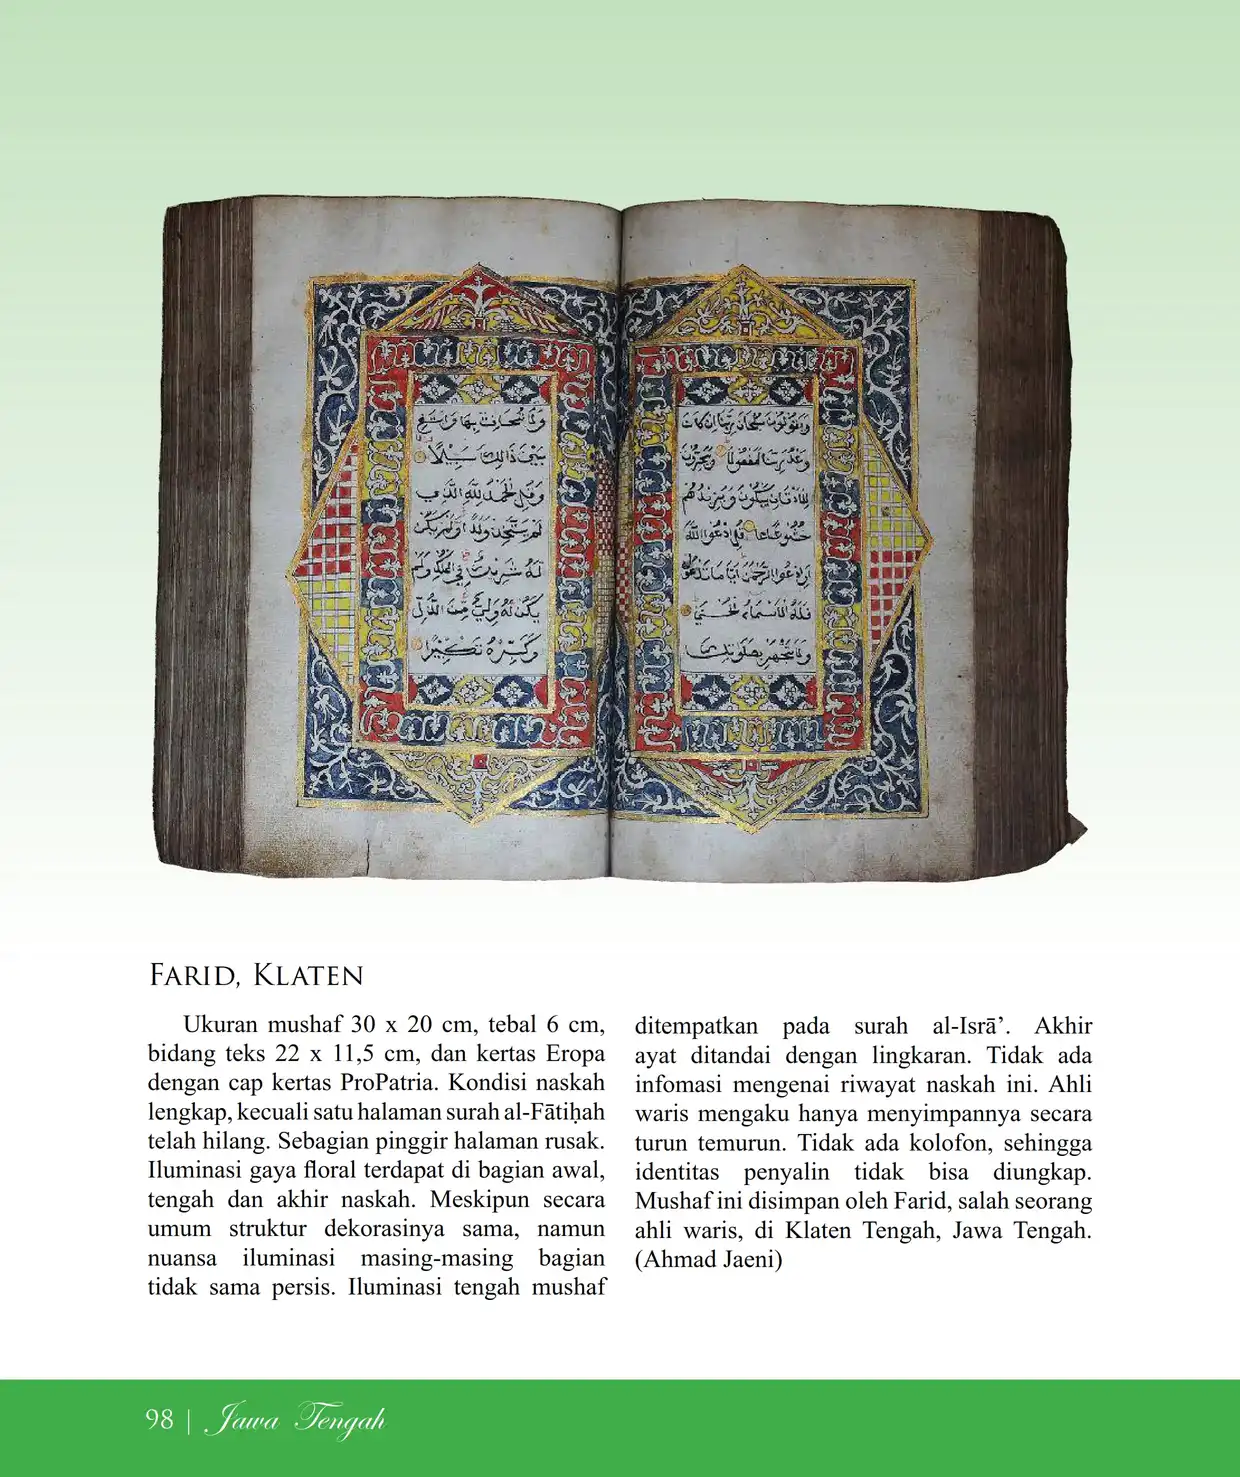 ويقولون سبحان ربنا ان كان
وعد ربنا لمفعولا ويخرون
للاذقان يبكون ويزيدهم
خشوعا قل ادعوا الله
او ادعوا الرحمن ايا ما تدعوا
فله الاسماء الحسنى
ولا تجهر بصلوتك
ولا تخافت بها وابتغ
بين ذالك سبيلا
وقل الحمد لله الذي
لم يتخذ ولدا ولم يكن
له شريك في الملك ولم
يكن له ولي من الذل
وكبره تكبيرا
Farid, Klaten
Ukuran mushaf 30 x 20 cm, tebal 6 cm,
bidang teks 22 x 11,5 cm, dan kertas Eropa
dengan cap kertas ProPatria. Kondisi naskah
lengkap, kecuali satu halaman surah al-Fātiḥah
telah hilang. Sebagian pinggir halaman rusak.
Iluminasi gaya floral terdapat di bagian awal,
tengah dan akhir naskah. Meskipun secara
umum struktur dekorasinya sama, namun
nuansa iluminasi masing-masing bagian
tidak sama persis. Iluminasi tengah mushaf
ditempatkan pada surah al-Isrā’. Akhir
ayat ditandai dengan lingkaran. Tidak ada
infomasi mengenai riwayat naskah ini. Ahli
waris mengaku hanya menyimpannya secara
turun temurun. Tidak ada kolofon, sehingga
identitas penyalin tidak bisa diungkap.
Mushaf ini disimpan oleh Farid, salah seorang
ahli waris, di Klaten Tengah, Jawa Tengah.
(Ahmad Jaeni)
98 | Jawa Tengah